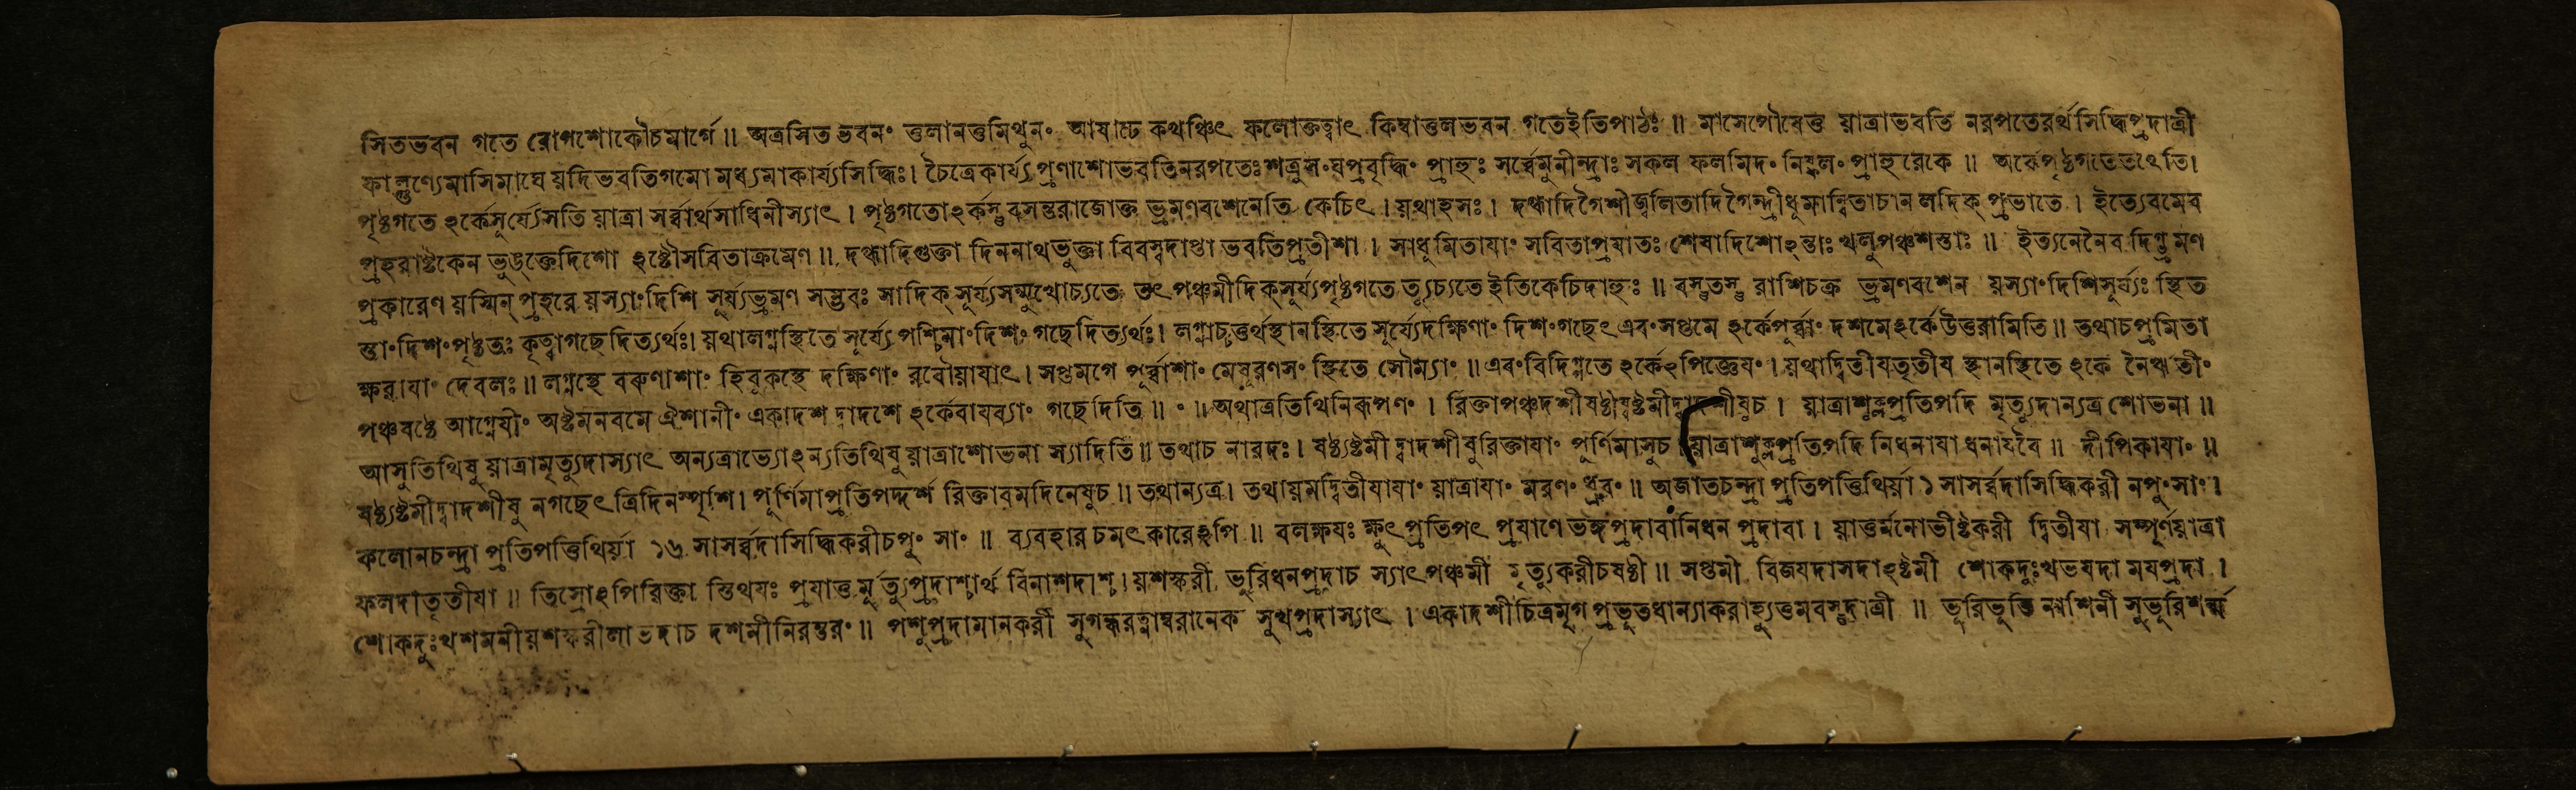 সিতভবন গতে রোগশোকৌচমার্গে॥ অত্রসিত ভবনং তুলানতুমিথুনং আষাঢে কথঞ্চিৎ ফলোক্তত্বাৎ কিম্বাতুলভবন গতেইতিপাঠঃ॥ মাসেপৌষেতু যাত্রাভবতি নরপতেরর্থসিদ্ধিপ্রদাত্রী
ফাল্গুণ্যেমাসিমাঘে যদিভবতিগমো মধ্যমাকার্য্যসিদ্ধিঃ। চৈত্রেকার্য্যপ্রণাশোভবতিনরপতেঃ শত্রুসংঘপ্রবৃদ্ধিং প্রাহুঃ সর্ব্বেমুনীন্দ্রাঃ সকল ফলমিদং নিষ্ফলং প্রাহুরেকে॥ অর্কেপৃষ্ঠগতেতথেতি।
পৃষ্ঠগতে ঽর্কেসূর্য্যেসতি যাত্রা সর্ব্বার্থসাধিনীস্যাৎ। পৃষ্ঠগতোঽর্কস্তুবসন্তরাজোক্ত ভ্রমণবশেনেতি কেচিৎ। যথাহসঃ। দগ্ধাদিগৈশীজ্বলিতাদিগৈন্দ্রীধূমান্বিতাচানলদিক্ প্রভাতে। ইত্যেবমেব
প্রহরাষ্টকেন ভুঙ্ক্তেদিশো ঽষ্টৌসবিতাক্রমেণ॥ দগ্ধাদিগুক্তা দিননাথভুক্তা বিবস্বদাপ্তা ভবতিপ্রতীশা। সাধুমিতাযাং সবিতাপ্রযাতঃ শেষাদিশোঽন্তাঃ খলুপঞ্চশস্তাঃ॥ ইত্যনেনৈব দিগ্ভ্রমণ
প্রকারেণ যস্মিন্ প্রহরে যস্যাংদিশি সূর্য্যভ্রমণ সম্ভবঃ সাদিক্ সূর্য্যসম্মুখোচ্যতে তৎ পঞ্চমীদিক্সূর্য্যপৃষ্ঠগতে ত্যুচ্যতে ইতিকেচিদাহুঃ॥ বস্তুতস্তু রাশিচক্র ভ্রমণবশেন যস্যাংদিশিসূর্য্যঃ স্থিত
স্তাংদিশংপৃষ্ঠতঃ কৃত্বাগছেদিত্যর্থঃ। যথালগ্নস্থিতে সূর্য্যে পশ্চিমাংদিশং গছেদিত্যর্থঃ। লগ্নাচ্চতুর্থস্থানস্থিতে সূর্য্যেদক্ষিণাং দিশংগছেৎ এবংসপ্তমে ঽর্কেপূর্ব্বাং দশমেঽর্কেউত্তরামিতি॥ তথাচপ্রমিতা
ক্ষরাযাং দেবলঃ॥ লগ্নস্থে বরুণাশাং হিবুকস্থে দক্ষিণাং রবৌযাযাৎ। সপ্তমগে পূর্ব্বাশাং মেষূরণসংস্থিতে সৌম্যাং॥ এবংবিদিগ্গতে ঽর্কেঽপিজ্ঞেযং। যথাদ্বিতীযতৃতীয স্থানস্থিতে ঽর্কে নৈঋতীং
পঞ্চষষ্ঠে আগ্নেযীং অষ্টমনবমে ঐশানীং একাদশ দ্বাদশে ঽর্কেবাযব্যাং গছেদিতি॥ ॰॥ অথাত্রতিথিনিরূপণং। রিক্তাপঞ্চদশীষষ্ঠ্যষ্টমীদ্বাদশীষুচ। যাত্রাশুক্লপ্রতিপদি মৃত্যুদান্যত্র শোভনা॥
আসুতিথিষু যাত্রামৃত্যুদাস্যাৎ অন্যত্রাভ্যোঽন্যতিথিষু যাত্রাশোভনা স্যাদিতি॥ তথাচ নারদঃ। ষষ্ঠ্যষ্টমী দ্বাদশীষুরিক্তাযাং পূর্ণিমাসুচ। যাত্রাশুক্লপ্রতিপদি নিধনাযাধনাযবৈ॥ দীপিকাযাং॥
ষষ্ঠ্যষ্টমীদ্বাদশীষু নগছেৎ ত্রিদিনস্পৃশি। পূর্ণিমাপ্রতিপদ্দর্শ রিক্তাবমদিনেষুচ॥ তথান্যত্র। তথাযমদ্বিতীযাযাং যাত্রাযাং মরণং ধ্রুবং॥ অজাতচন্দ্রা প্রতিপত্তিথির্যা ১ সাসর্ব্বদাসিদ্ধিকরী নপুংসাং।
কলোনচন্দ্রা প্রতিপত্তিথির্যা ১৬ সাসর্ব্বদাসিদ্ধিকরীচপুং সাং॥ ব্যবহার চমৎকারেঽপি॥ বলক্ষযঃ ক্ষুৎ প্রতিপৎ প্রযাণে ভঙ্গপ্রদাবানিধন প্রদাবা। যাতুর্মনোভীষ্টকরী দ্বিতীযা সম্পূর্ণযাত্রা
ফলদাতৃতীযা॥ তিস্রোঽপিরিক্তা স্তিথযঃ প্রযাতুর্মৃত্যুপ্রদাশ্চার্থ বিনাশদাশ্চ। যশস্করী ভূরিধনপ্রদাচ স্যাৎপঞ্চমী মৃত্যুকরীচষষ্ঠী॥ সপ্তমী বিজযদাসদাঽষ্টমী শোকদুঃখভযদা মযপ্রদা।
শোকদুঃখশমনীযশস্করীলাভদাচ দশমীনিরন্তরং॥ পশুপ্রদামানকরী সুগন্ধরত্নাম্বরানেক সুখপ্রদাস্যাৎ। একাদশীচিত্রমৃগ প্রভূতধান্যাকরাহ্যুত্তমবস্তুদাত্রী॥ ভূরিভুক্তি নাশিনী সুভূরিশর্ম্ম